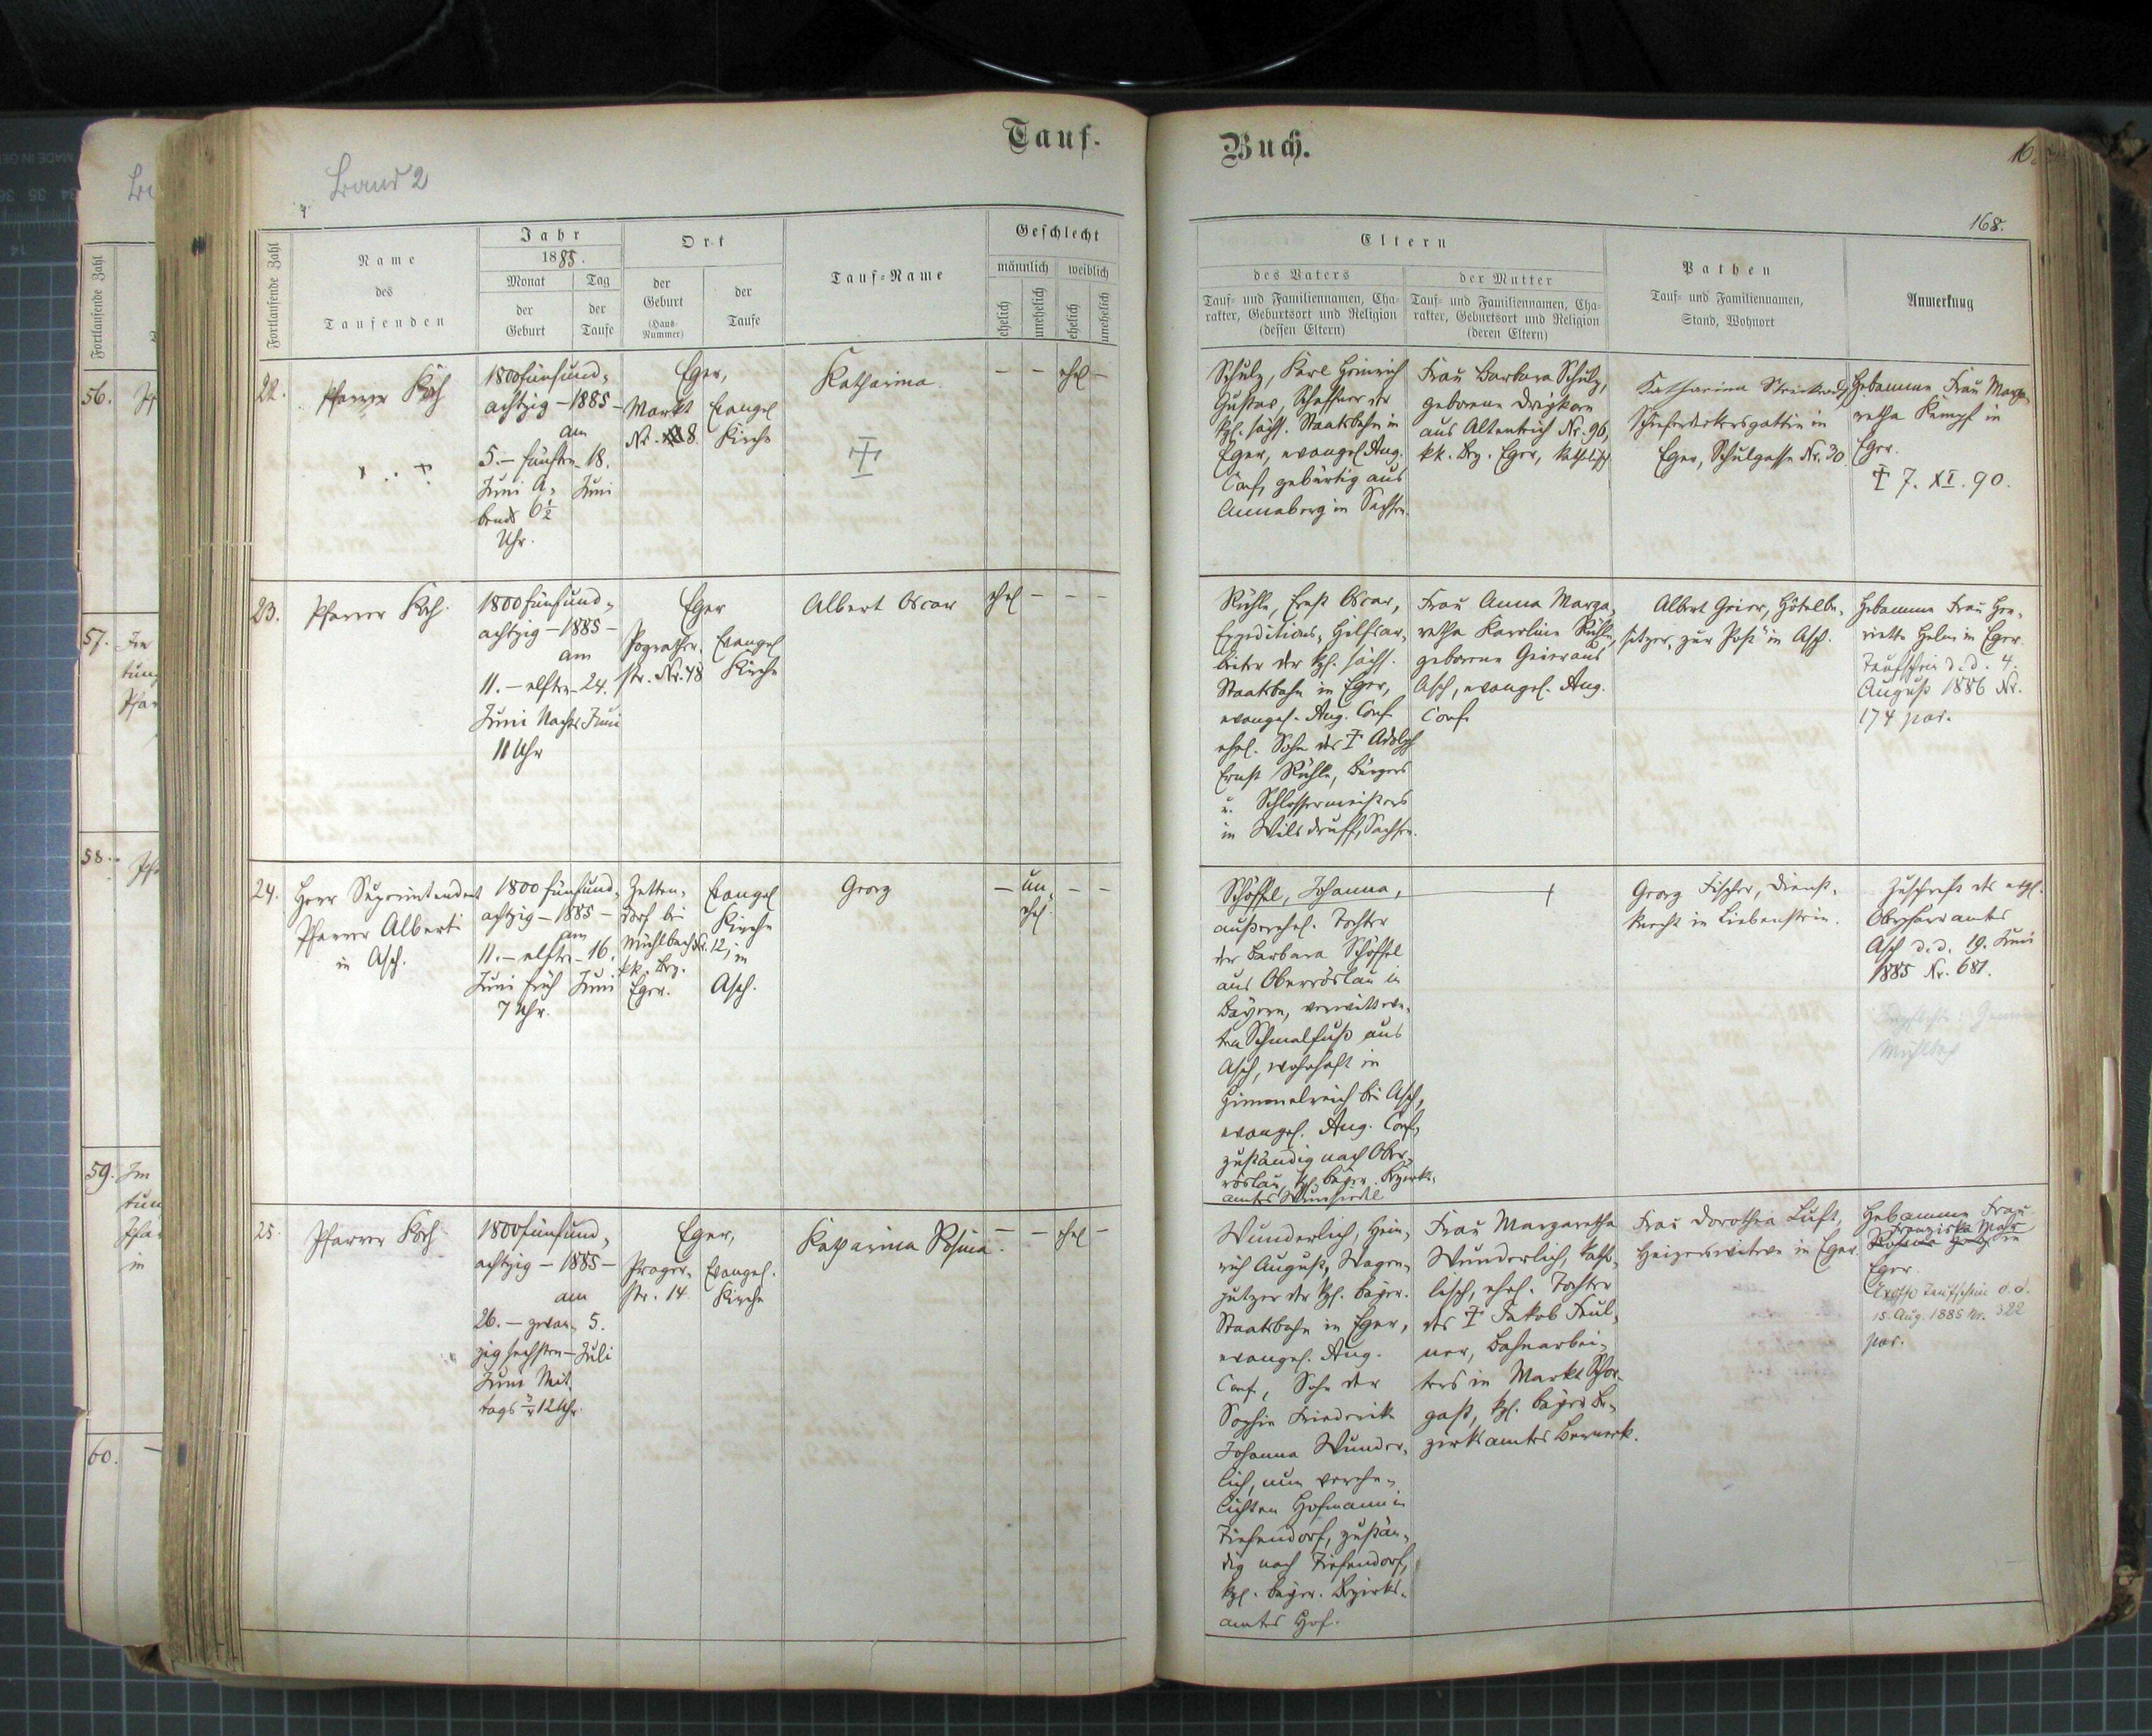 Tauf-
Buch.
Band 2
168.
Fortlaufende Zahl
Name
des
Taufenden
Jahr
1885.
Monat
der
Geburt
Tag
der
Taufe
Ort
der
Geburt
(Haus-
Nummer)
der
Taufe
Tauf-Name
Geschlecht
männlich
weiblich
ehelich
unehelich
ehelich
unehelich
Eltern
des Vaters
Tauf- und Familiennamen, Cha-
rakter, Geburtsort und Religion
(dessen Eltern)
der Mutter
Tauf- und Familiennamen, Cha-
rakter, Geburtsort und Religion
(deren Eltern)
Pathen
Tauf- und Familiennamen,
Stand, Wohnort
Anmerkung
22.
Pfarrer Koch
1800fünfund-
achtzig - 1885 -
am
5. - fünften
Juni A-
bends 6½
Uhr.
18.
Juni
Eger,
Markt
Nr. 8
Evangel
Kirche
Katharina.
†
- - ehel -
Schulz, Karl Heinrich
Gustav, Schaffner der
kgl. sächs. Staatsbahn in
Eger, evangel. Aug.
Conf, gebürtig aus
Annaberg in Sachsen.
Frau Barbara Schulz,
geborene
aus Altenteich Nr. 96,
kk. Bez. Eger, katholisch
Katharina
Schieferdeckersgattin in
Eger, Schulgasse Nr. 30.
Hebamme Frau Marga-
retha Kempf in
Eger.
† 7. XI. 90.
23.
Pfarrer Koch.
1800fünfund-
achtzig - 1885 -
am
11. - elften
Juni Nachts
11 Uhr
24.
Juni
Eger
Pograther-
str. Nr. 48
Evangel
Kirche
Albert Oscar
ehel - - -
Rühle, Ernst Oscar,
Expeditions-Hilfsar-
beiter der kgl. sächs.
Staatsbahn in Eger,
evangel. Aug. Conf
ehel. Sohn des † Adolph
Ernst Rühle, Bürgers
u. Schlossermeisters
in Wilsdruff, Sachsen.
Frau Anna Marga-
retha Karoline Rühle,
geborene Geier aus
Asch, evangel. Aug.
Conf.
Albert Geier, Hôtelbe-
sitzer „zur Post" in Asch.
Hebamme Frau Hen-
riette Helm in Eger.
Taufschein d. d. 4.
August 1886 Nr.
174 par.
24.
Herr Superintendent
Pfarrer Alberti
in Asch.
1800 fünfund-
achtzig - 1885 -
am
11. - elften
Juni früh
7 Uhr.
16.
Juni
Zetten-
dorf bei
Mühlbach Nr. 12,
kk. Bez.
Eger.
Evangel
Kirche
in
Asch.
Georg
- un-
ehel. - -
Schöffel, Johanna,
außerehel. Tochter
der Barbara Schöffel
aus Oberröslau in
Bayern, verwittwe-
ten Schmalfuß aus
Asch, wohnhaft in
Himmelreich bei Asch,
evangel. Aug. Conf,
zuständig nach Ober-
röslau, kgl. bayer. Bezirks-
amtes Wunsiedel
Georg Fischer, Dienst-
knecht in Liebenstein.
Zuschrift des evgl.
Oberpfarramtes
Asch d. d. 19. Juni
1885 Nr. 681.
Mühlbach
25.
Pfarrer Koch
1800fünfund-
achtzig - 1885 -
am
26. - zwan-
zigsechsten -
Juni Mit-
tags 12 Uhr.
5.
Juli
Eger,
Prager-
str. 14.
Evangel.
Kirche
Katharina Rosina.
- - ehel -
Wunderlich, Hein-
rich August, Wagen-
putzer der kgl. bayer.
Staatsbahn in Eger,
evangel. Aug.
Conf., Sohn der
Sophie Friederike
Johanna Wunder-
lich, nun verehe-
lichten Hofmann in
Tiefendorf, zustän-
dig nach Tiefendorf,
kgl. bayer. Bezirks-
amtes Hof.
Frau Margaretha
Wunderlich, katho-
lisch, ehel. Tochter
des † Jakob
Bahnarbei-
ters in Markt Schor-
gast, kgl. bayer. Be-
zirksamtes Berneck.
Frau Dorothea Luft,
Heizerswitwe in Eger.
Hebamme Frau
Franziska Mohr
in
Eger.
Taufschein d. d.
15. Aug. 1885 Nr. 322
par.
56.
57.
58.
59.
60.